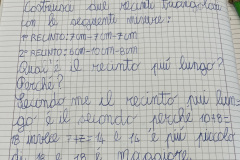 Costruisci due recinti triangolari
con le seguenti misure:
1° RECINTO: 7cm-7cm-7cm
2° RECINTO: 6cm-10cm-8cm
Qual'è il recinto più lungo?
Perché?
Secondo me il recinto più lun-
go è il secondo perché 10+8=
18 invece 7+7= 14 e 14 è più piccolo
di 18 e 18 è maggiore.